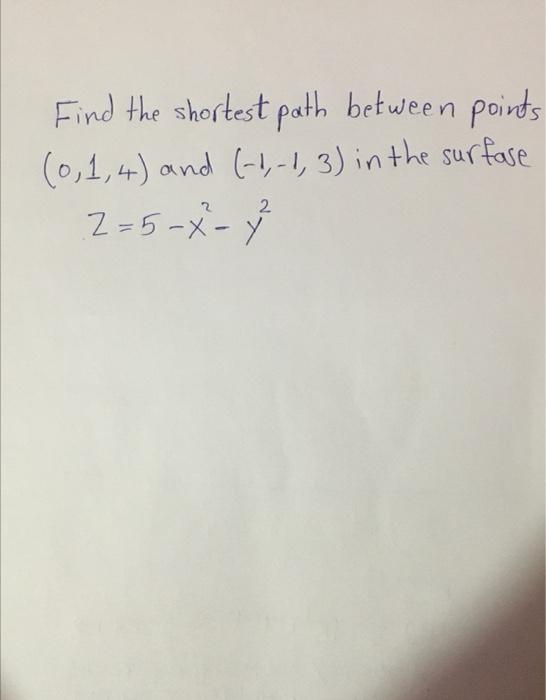 Find the shortest path between points
(0,1,4) and (-1,-1, 3) in the surfase
Z = 5 - x² - y²